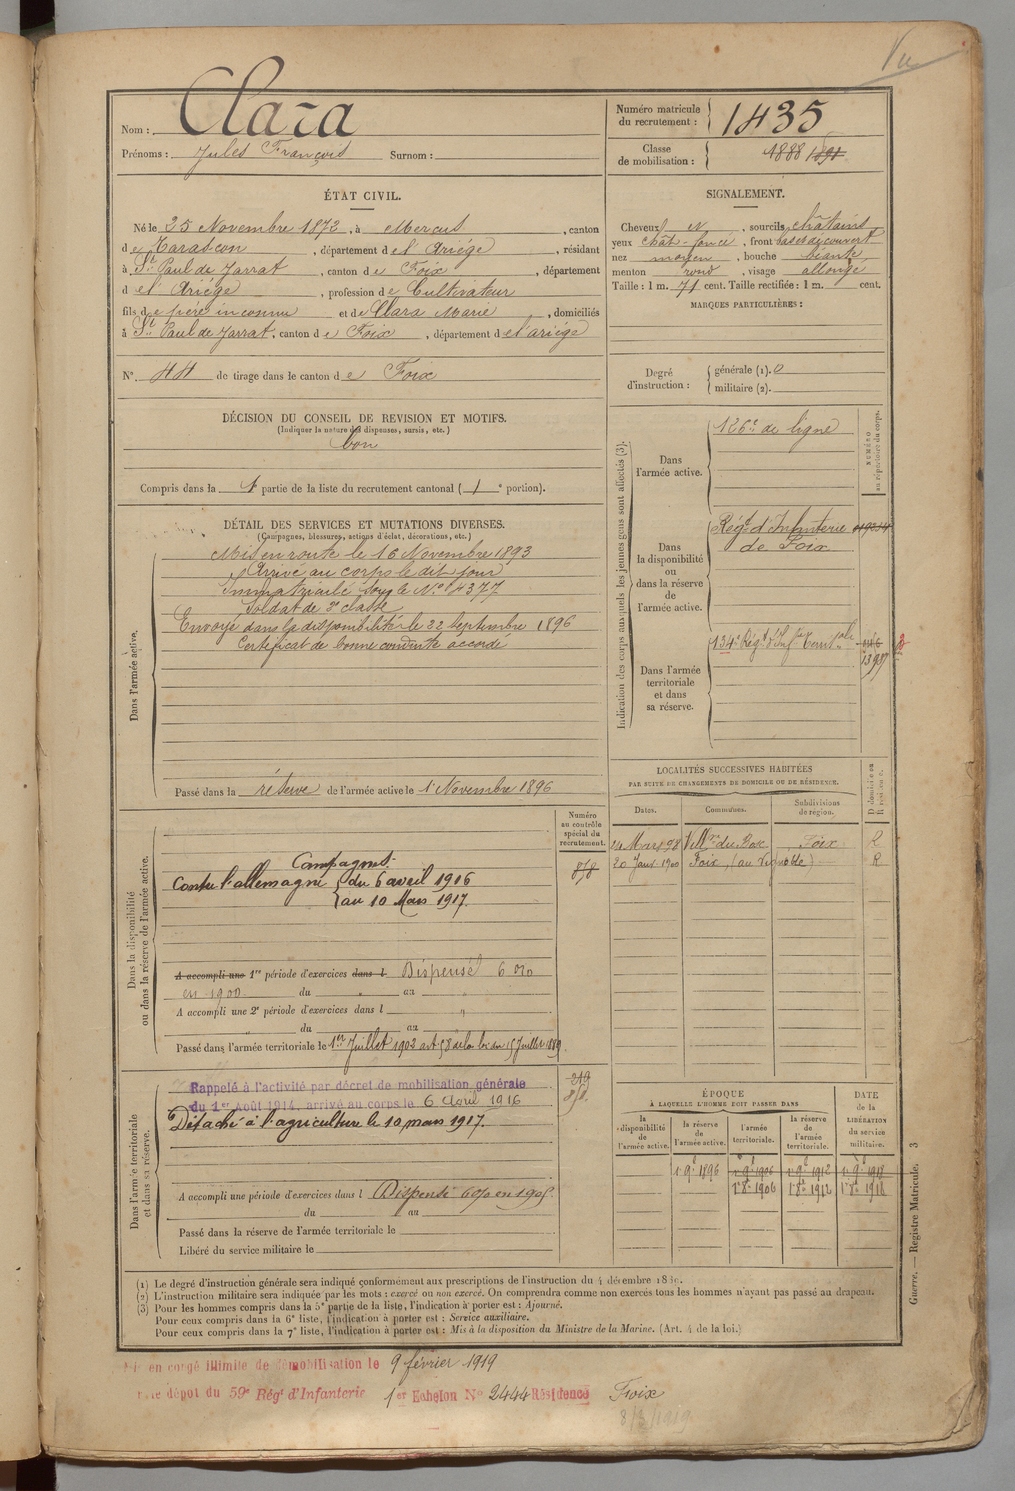 Vu
Nom : Clara
Prénoms : Jules François Surnom :
Numéro matricule du recrutement : 1435
Classe de mobilisation : 1888 1891
ÉTAT CIVIL.
Né le 25 Novembre 1872, à Mercus, canton
de Tarascon, département de l'Ariège, résidant
à St Paul de Jarrat, canton de Foix, département
de l'Ariège, profession de Cultivateur
fils de père inconnu et de Clara Marie, domiciliés
à St Paul de Jarrat, canton de Foix, département de l'ariège
N° 44 de tirage dans le canton de Foix
SIGNALEMENT.
Cheveux et, sourcils châtains
yeux chât-foncé, front bas découvert
nez moyen, bouche béante
menton rond, visage allongé
Taille : 1 m. 71 cent. Taille rectifiée : 1 m. cent.
MARQUES PARTICULIÈRES :
Degré d'instruction : générale (1). 0
militaire (2).
DÉCISION DU CONSEIL DE REVISION ET MOTIFS.
(Indiquer la nature des dispenses, sursis, etc.)
bon
Compris dans la 1e partie de la liste du recrutement cantonal (1e portion).
DÉTAIL DES SERVICES ET MUTATIONS DIVERSES.
(Campagnes, blessures, actions d'éclat, décorations, etc.)
Dans l'armée active.
Mis en route le 16 Novembre 1893
Arrivé au corps le dit jour
Immatriculé sous le N° 4377
Soldat de 2e classe
Envoyé dans la disponibilité le 22 Septembre 1896
Certificat de bonne conduite accordé
Passé dans la réserve de l'armée active le 1 Novembre 1896
Indication des corps auxquels les jeunes gens sont affectés (3).
NUMÉRO au répertoire du corps.
Dans l'armée active.
126e de ligne
Dans la disponibilité ou dans la réserve de l'armée active.
Régt d'Infanterie
de Foix
Dans l'armée territoriale et dans sa réserve.
134e Régt d'Inf
LOCALITÉS SUCCESSIVES HABITÉES
PAR SUITE DE CHANGEMENTS DE DOMICILE OU DE RÉSIDENCE.
Dates. Communes. Subdivisions de région. D domicile ou R résidence.
Foix R
20 Janv 1900 Foix, (au Vignoble) R
Dans la disponibilité ou dans la réserve de l'armée active.
Numéro au contrôle spécial du recrutement.
878
Campagnes.
Contre l'allemagne du 6 avril 1916
au 10 Mars 1917.
A accompli une 1re période d'exercices dans l Dispensé 6 0/0
en 1900 du " au "
A accompli une 2e période d'exercices dans l "
" du au
Passé dans l'armée territoriale le 1er Juillet 1902 art 58 de la loi du 15 Juillet 1889.
Dans l'armée territoriale et dans sa réserve.
Rappelé à l'activité par décret de mobilisation générale
du 1er Août 1914, arrivé au corps le 6 Avril 1916
Détaché à l'agriculture le 10 mars 1917.
A accompli une période d'exercices dans l Dispensé 6 0/0 en 1905
du au
Passé dans la réserve de l'armée territoriale le
Libéré du service militaire le
ÉPOQUE
À LAQUELLE L'HOMME DOIT PASSER DANS
DATE de la LIBÉRATION du service militaire.
la disponibilité de l'armée active. la réserve de l'armée active. l'armée territoriale. la réserve de l'armée territoriale.
1 9e 1896 1 9e 1906 1 9e 1912 1 9e 1918
1 8e 1906 1 8e 1912 1 8e 1918
(1) Le degré d'instruction générale sera indiqué conformément aux prescriptions de l'instruction du 4 décembre 1889.
(2) L'instruction militaire sera indiquée par les mots : exercé ou non exercé. On comprendra comme non exercés tous les hommes n'ayant pas passé au drapeau.
(3) Pour les hommes compris dans la 5e partie de la liste, l'indication à porter est : Ajourné.
Pour ceux compris dans la 6e liste, l'indication à porter est : Service auxiliaire.
Pour ceux compris dans la 7e liste, l'indication à porter est : Mis à la disposition du Ministre de la Marine. (Art. 4 de la loi.)
Guerre. — Registre Matricule. 3
Mis en congé illimité de démobilisation le 9 février 1919
dépôt du 59e Régt d'Infanterie 1er Echelon N° 2444 Résidence Foix